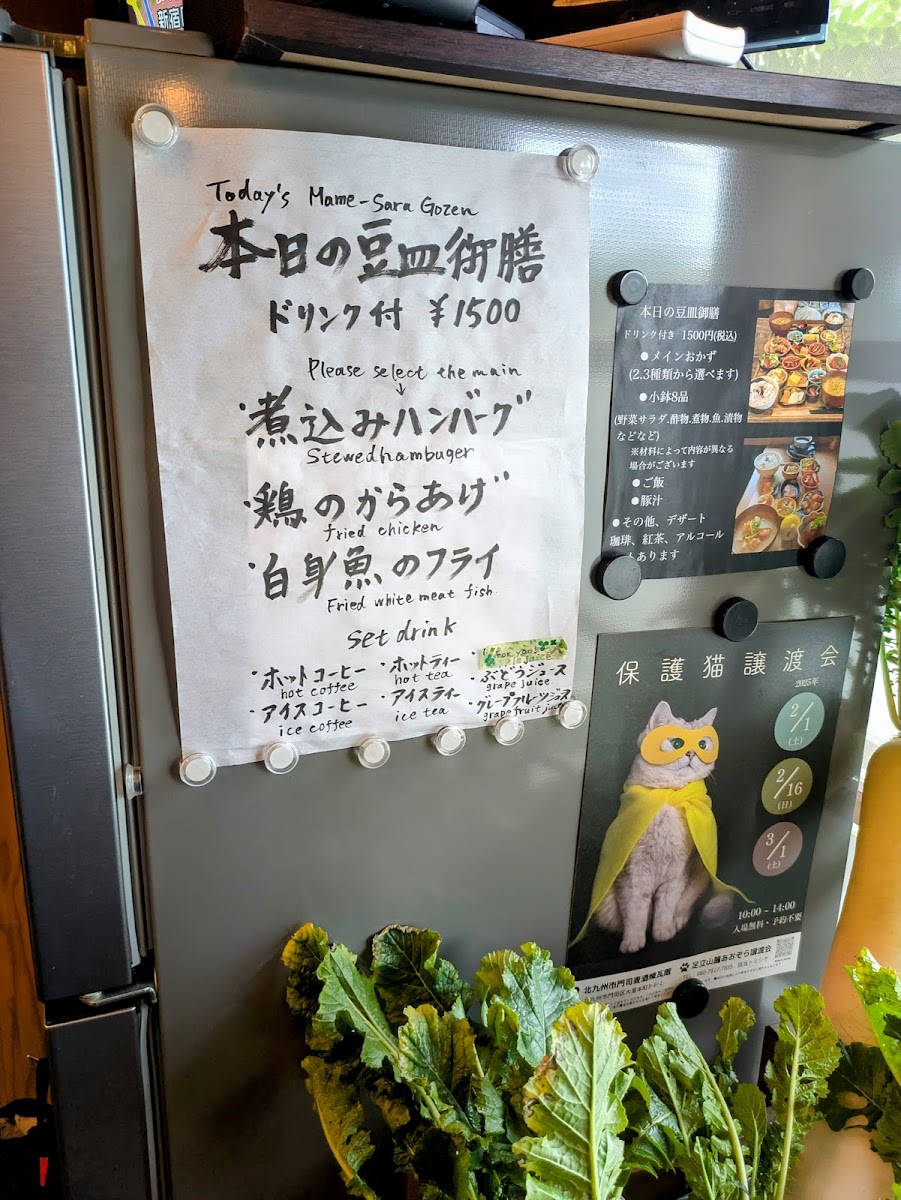 新宿
Today's Mame-Sara Gozen
本日の豆皿御膳
ドリンク付 ¥1500
Please select the main
↓
・煮込みハンバーグ
Stewedhambuger
・鶏のからあげ
fried chicken
・白身魚のフライ
Fried white meat fish
set drink
・ホットコーヒー
hot coffee
・アイスコーヒー
ice coffee
・ホットティー
hot tea
・アイスティー
ice tea
・ぶどうジュース
grape juice
・グレープフルーツジュース
grape fruit juice
本日の豆皿御膳
ドリンク付き 1500円(税込)
●メインおかず
(2.3種類から選べます)
●小鉢8品
(野菜サラダ.酢物.煮物.魚.漬物
などなど)
※材料によって内容が異なる
場合がございます
●ご飯
●豚汁
●その他、デザート
珈琲、紅茶、アルコール
もあります
保護猫譲渡会
2025年
2/1
(土)
2/16
(日)
3/1
(土)
10:00 - 14:00
入場無料・予約不要
足立山麓あおぞら譲渡会
北九州市門司麦酒煉瓦館
北九州市門司区大里本町3-6-1